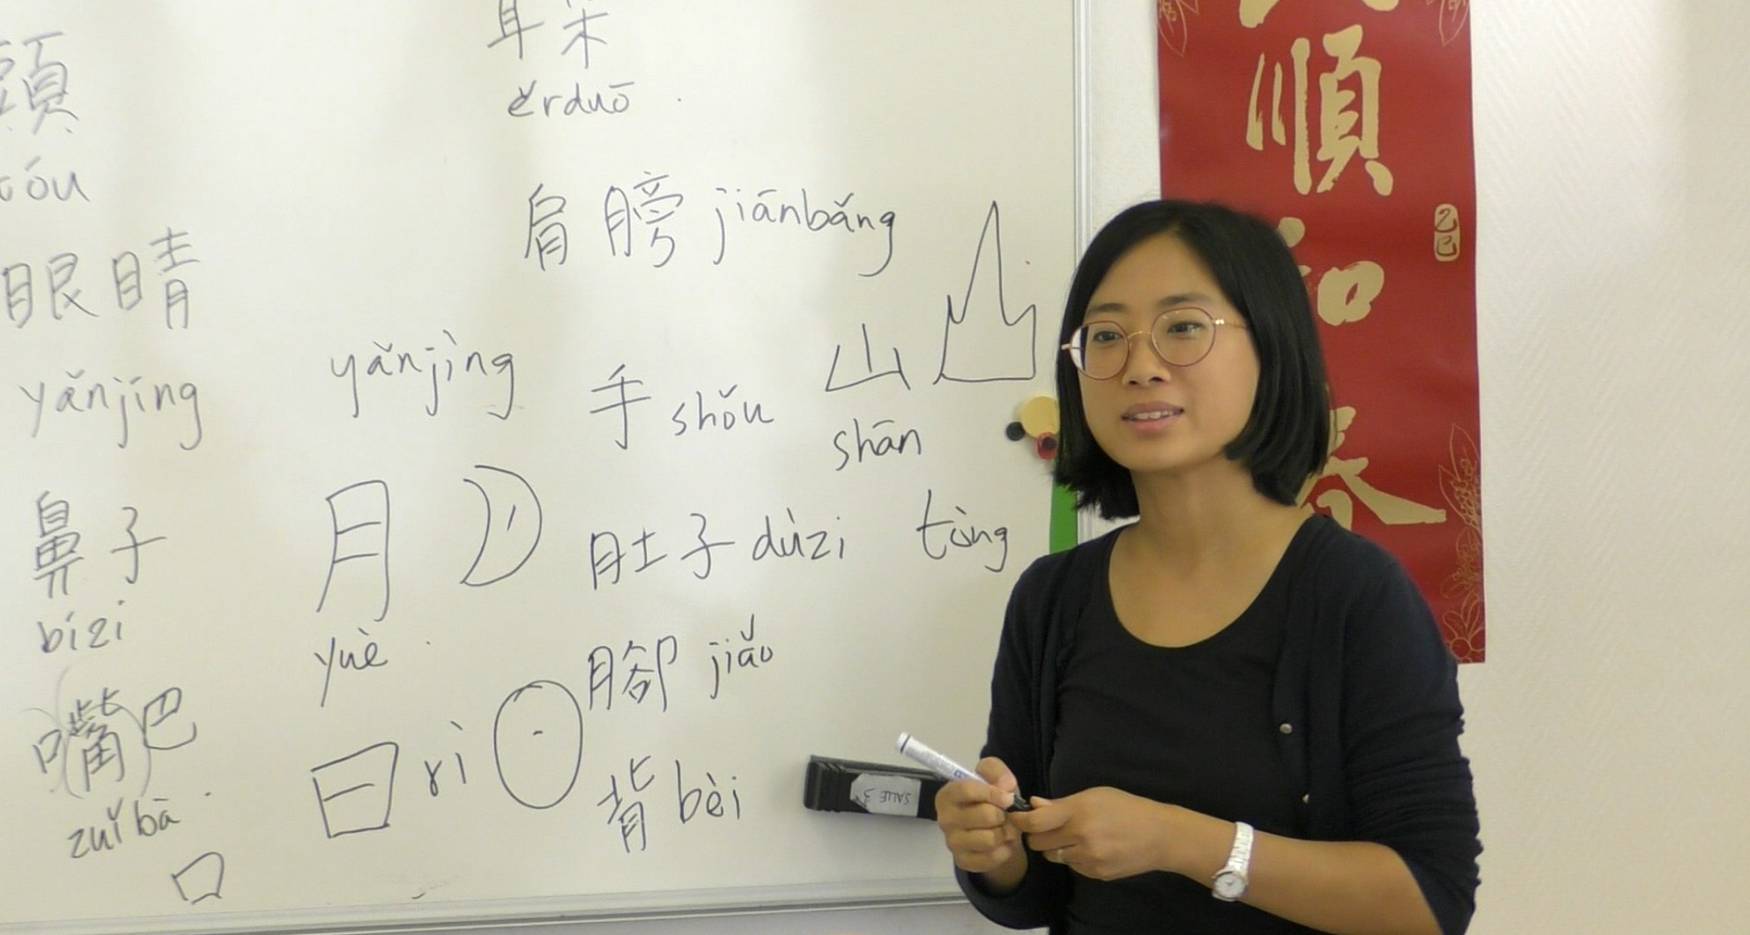 頭
óu
眼睛
yǎnjīng
鼻子
bízi
嘴巴
zuǐbā
口
耳朵
ěrduō
肩膀 jiānbǎng
yǎnjìng
手 shǒu
山
shān
月
yuè
肚子 dùzi tòng
腳 jiǎo
日 rì
背 bèi
SALLE 3
順
和
春
乙巳